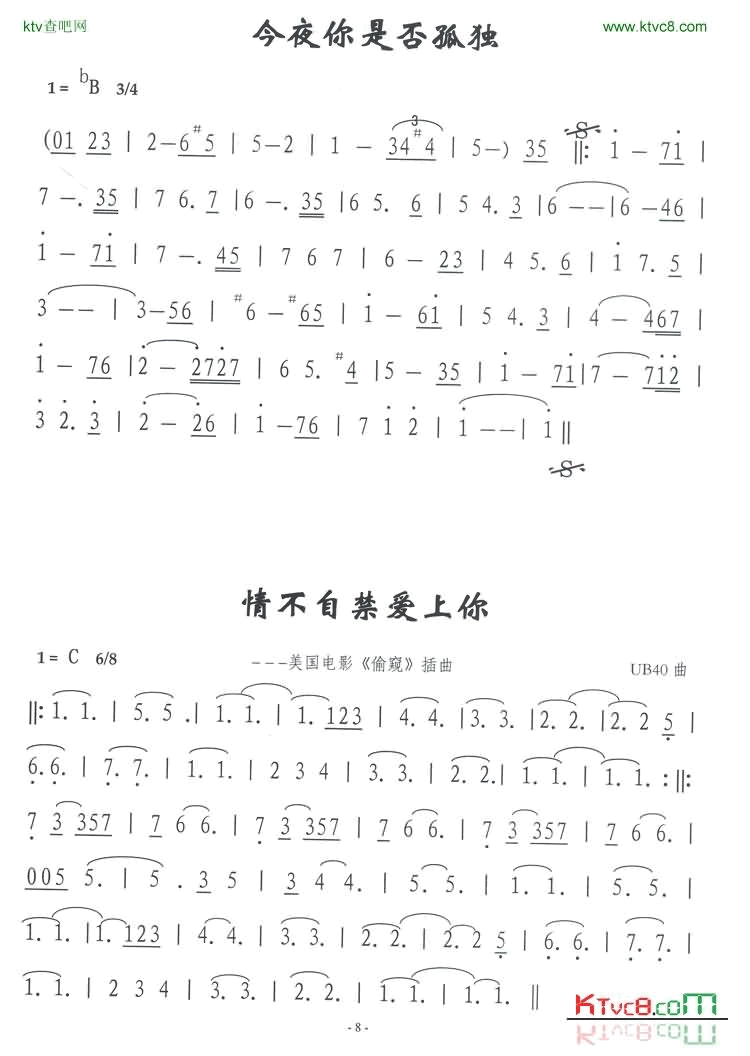 ktv查吧网 www.ktvc8.com
今夜你是否孤独
1= bB 3/4
(01 23 | 2—6 #5 | 5—2 | 1 — 34 #4 | 5—) 35 ‖: 1 — 71 |
7 —. 35 | 7 6. 7 |6 —. 35 |6 5. 6 | 5 4. 3 |6 — —|6 —46 |
1 — 71 | 7 —. 45 | 7 6 7 | 6 — 23 | 4 5. 6 | 1 7. 5 |
3 — — | 3—56 | #6 — #65 | 1 — 61 | 5 4. 3 | 4 — 467 |
1 — 76 |2 — 2727 | 6 5. #4 |5 — 35 | 1 — 71|7 — 712 |
3 2. 3 | 2 — 26 | 1 —76 | 7 1 2 | 1 — —| 1 ‖
S
情不自禁爱上你
1= C 6/8 ---美国电影《偷窥》插曲 UB40 曲
‖: 1. 1. | 5. 5 .| 1. 1. | 1. 123 | 4. 4. |3. 3. |2. 2. |2. 2 5 |
6. 6. | 7. 7. | 1. 1. | 2 3 4 | 3. 3. | 2. 2.| 1. 1. | 1. 1. :‖:
7 3 357 | 7 6 6. | 7 3 357 | 7 6 6. | 7 3 357 | 7 6 6. |
005 5. | 5 . 3 5 | 3 4 4. | 5. 5. | 1. 1. | 5. 5. |
1. 1. |1. 123 | 4. 4. | 3. 3. | 2. 2. | 2. 2 5 | 6. 6. | 7. 7. |
1. 1. | 2 3 4 | 3. 3. | 2. 2. | 1. 1. | 1. 1. ‖
KTVC8.COM
- 8 -